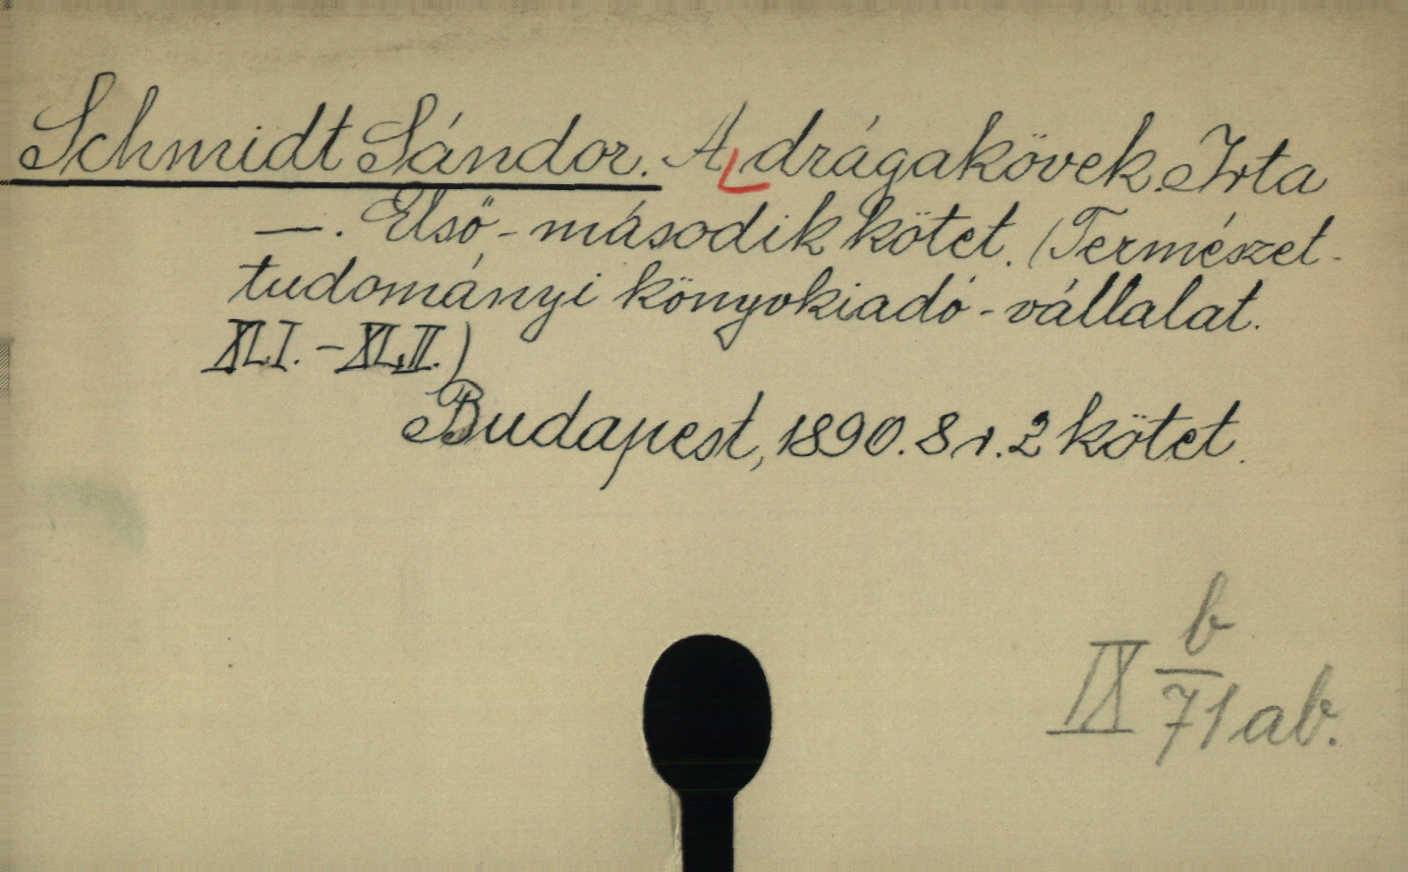 Schmidt Sándor. A drágakövek. Irta
—. Első-második kötet. (Természet-
tudományi könyvkiadó-vállalat.
XLI.-XLII.)
Budapest, 1890. 8 r. 2 kötet.
IX b/71 ab.